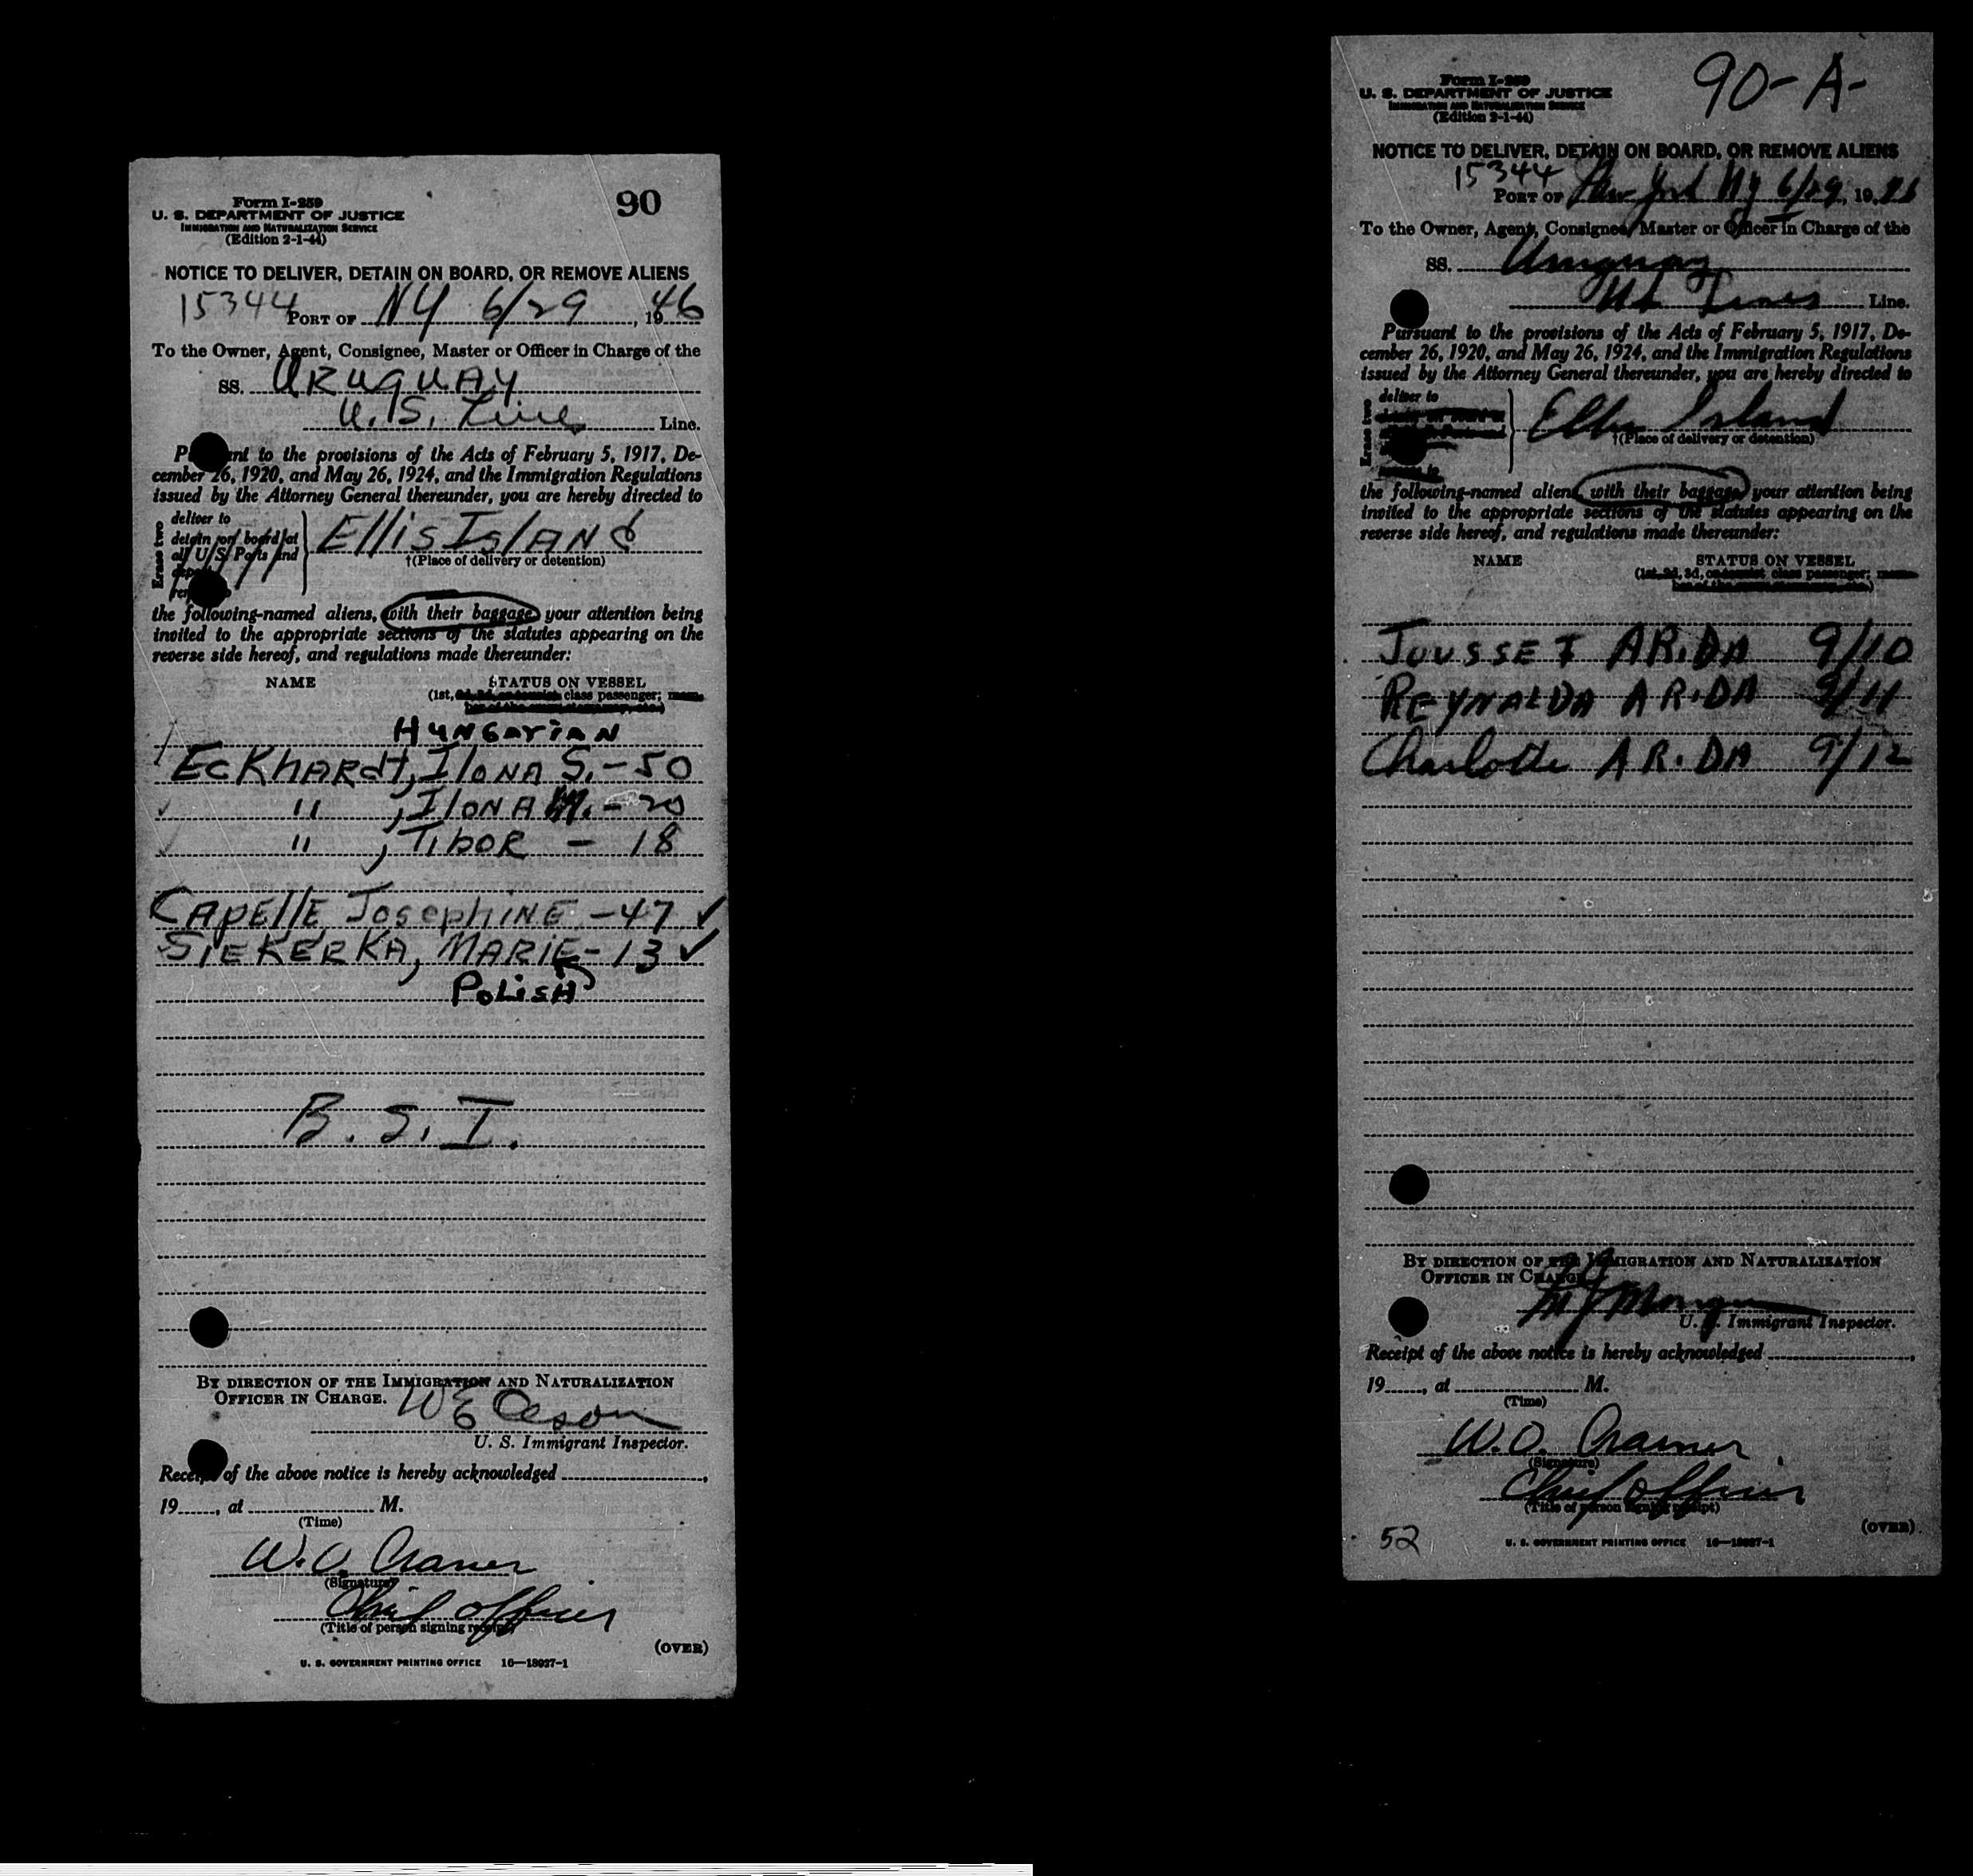 90
Form I-259
U. S. DEPARTMENT OF JUSTICE
IMMIGRATION AND NATURALIZATION SERVICE
(Edition 2-1-44)
NOTICE TO DELIVER, DETAIN ON BOARD, OR REMOVE ALIENS
15344
PORT OF NY 6/29, 1946
To the Owner, Agent, Consignee, Master or Officer in Charge of the
SS. URUGUAY
U.S. Line Line.
Pursuant to the provisions of the Acts of February 5, 1917, De-
cember 26, 1920, and May 26, 1924, and the Immigration Regulations
issued by the Attorney General thereunder, you are hereby directed to
Erase two
deliver to
detain on board at
all U/S/ Ports and
Ellis Island
†(Place of delivery or detention)
the following-named aliens, with their baggage, your attention being
invited to the appropriate sections of the statutes appearing on the
reverse side hereof, and regulations made thereunder:
NAME STATUS ON VESSEL
(1st, class passenger;
HUNGARIAN
ECKHARdt, IlONA S. - 50
" , IlONA M. - 20
" , TIBOR - 18
CAPEllE, JosephINE - 47 ✓
SIEKERKA, MARIE - 13 ✓
POLISH
B. S. I.
BY DIRECTION OF THE IMMIGRATION AND NATURALIZATION
OFFICER IN CHARGE.
W E
U. S. Immigrant Inspector.
Receipt of the above notice is hereby acknowledged ,
19 , at M.
(Time)
W. O. Cramer
(Signature)
Chief officer
(Title of person signing receipt)
(OVER)
U. S. GOVERNMENT PRINTING OFFICE 16—18027-1
90-A-
Form I-259
U. S. DEPARTMENT OF JUSTICE
IMMIGRATION AND NATURALIZATION SERVICE
(Edition 2-1-44)
NOTICE TO DELIVER, DETAIN ON BOARD, OR REMOVE ALIENS
15344
PORT OF New York Ny 6/29, 1946
To the Owner, Agent, Consignee, Master or Officer in Charge of the
SS. Uruguay
Lines Line.
Pursuant to the provisions of the Acts of February 5, 1917, De-
cember 26, 1920, and May 26, 1924, and the Immigration Regulations
issued by the Attorney General thereunder, you are hereby directed to
Erase two
deliver to
Ellis Island
†(Place of delivery or detention)
the following-named aliens, with their baggage, your attention being
invited to the appropriate sections of the statutes appearing on the
reverse side hereof, and regulations made thereunder:
NAME STATUS ON VESSEL
class passenger;
JOUSSEF ARIDA 9/10
REYNALDA ARIDA 9/11
Charlotte ARIDA 9/12
BY DIRECTION OF THE IMMIGRATION AND NATURALIZATION
OFFICER IN CHARGE.
U. S. Immigrant Inspector.
Receipt of the above notice is hereby acknowledged ,
19 , at M.
(Time)
W. O. Cramer
(Signature)
Chief officer
(Title of person signing receipt)
(OVER)
52
U. S. GOVERNMENT PRINTING OFFICE 16—18027-1